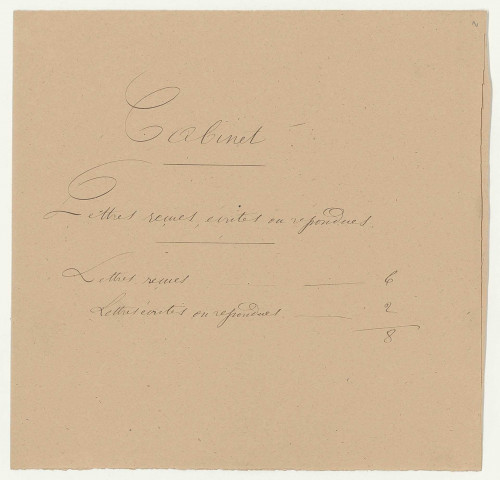 Cabinet
Lettres reçues, écrites ou répondues.
Lettres reçues 6
Lettres écrites ou répondues 2
8